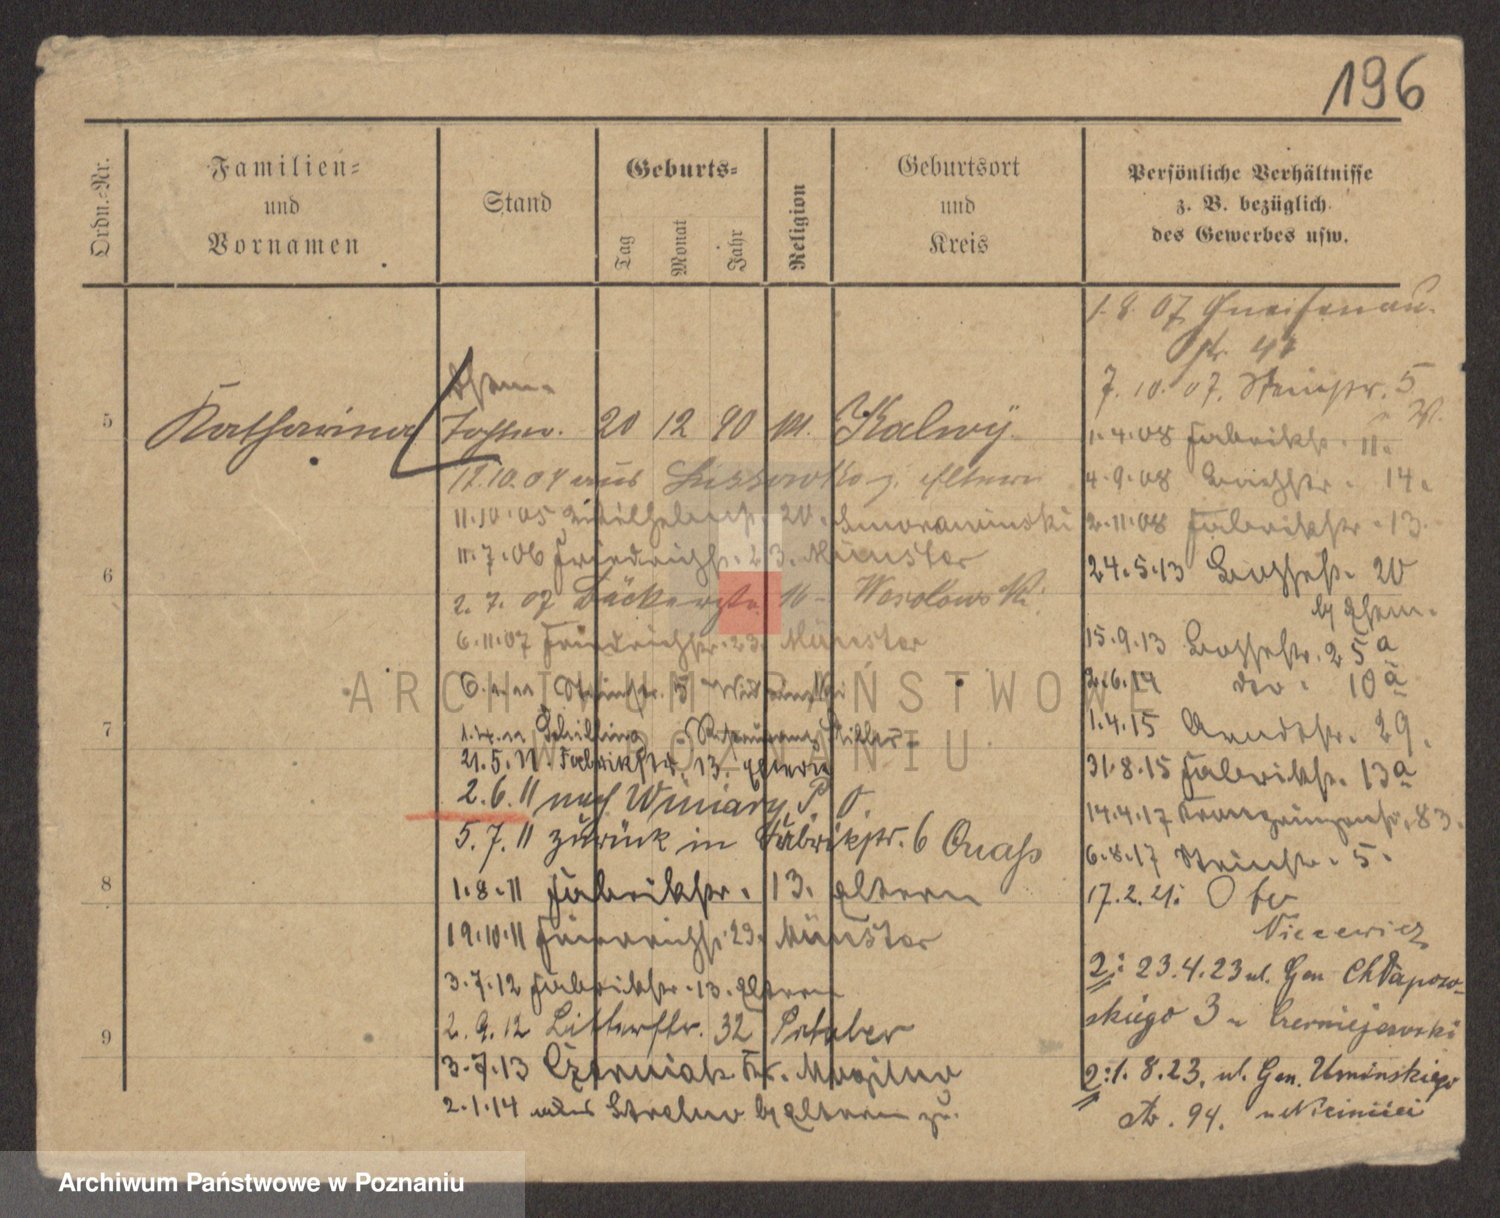 196
Ordn.-Nr.
Familien-
und
Vornamen
Stand
Geburts-
Tag
Monat
Jahr
Religion
Geburtsort
und
Kreis
Persönliche Verhältnisse
z. B. bezüglich
des Gewerbes usw.
5
Katharina
Ehem.
Tochter.
20 12 90
Kalwÿ
12.10.04 aus Lussowko z. Eltern
11.10.05 20.
11.7.06 Friedrichstr. 23. Münster
2.7.07 Bäckerstr. 16
6
6.11.07 Friedrichstr. 23. Münster
Steinstr. 5
7
1.4.11 Schilling
21.5.11 Fabrikstr. 13. Eltern
2.6.11 nach Winiary P. O.
5.7.11 zürück in Fabrikstr. 6
8
1.8.11 Fabrikstr. 13. Eltern
19.10.11 Friedrichstr. 23. Münster
3.7.12 Fabrikstr. 13. Eltern
2.9.12 Ritterstr. 32
9
3.7.13 Czerniak Kr. Mogilno
2.1.14 aus Strelno b/ Eltern zu.
1.8.07 Gneisenau.
str. 47
7.10.07. Steinstr. 5
W.
1.4.08 Fabrikstr. 11.
4.9.08 14.
2.11.08 Fabrikstr. 13.
24.5.13 20
b/ Ehem.
15.9.13 25a
2.6.14 dto. 10a
1.4.15 Arndtstr. 29.
31.8.15 Fabrikstr. 13a
14.4.17 Kronprinzenstr. 83.
6.8.17 Steinstr. 5.
17.2.21:
Nicewicz
2: 23.4.23 ul. Gen Chłapow-
skiego 3 u Czerniejewski
2: 1.8.23. ul. Gen. Umińskiego
94.
ARCHIWUM PAŃSTWOWE
W POZNANIU
Archiwum Państwowe w Poznaniu